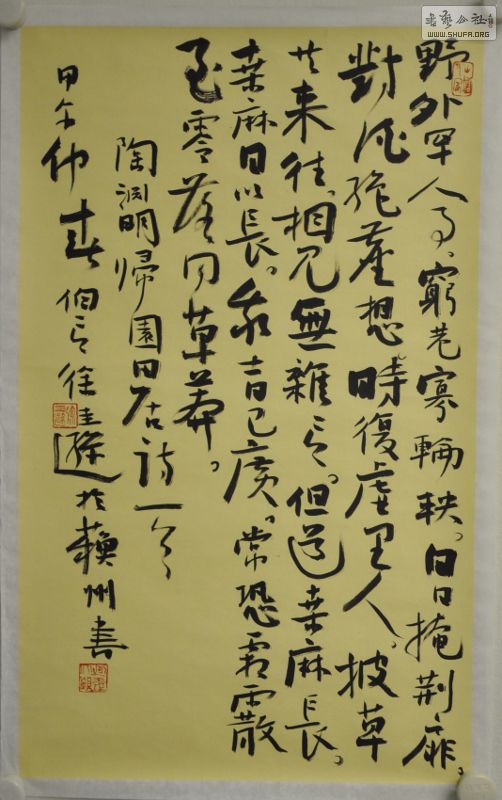 書藝公社
WWW.SHUFA.ORG
野外罕人事、窮巷寡輪鞅。白日掩荊扉。
對酒絕塵想時復虛里人。披草
共来往。相見無雜言。但道桑麻長。
桑麻日以長。我土日已廣。常恐霜霰
至零落同草莽。
陶淵明歸園田居詩一首
甲午仲春伯言徐圭遜於蘇州書